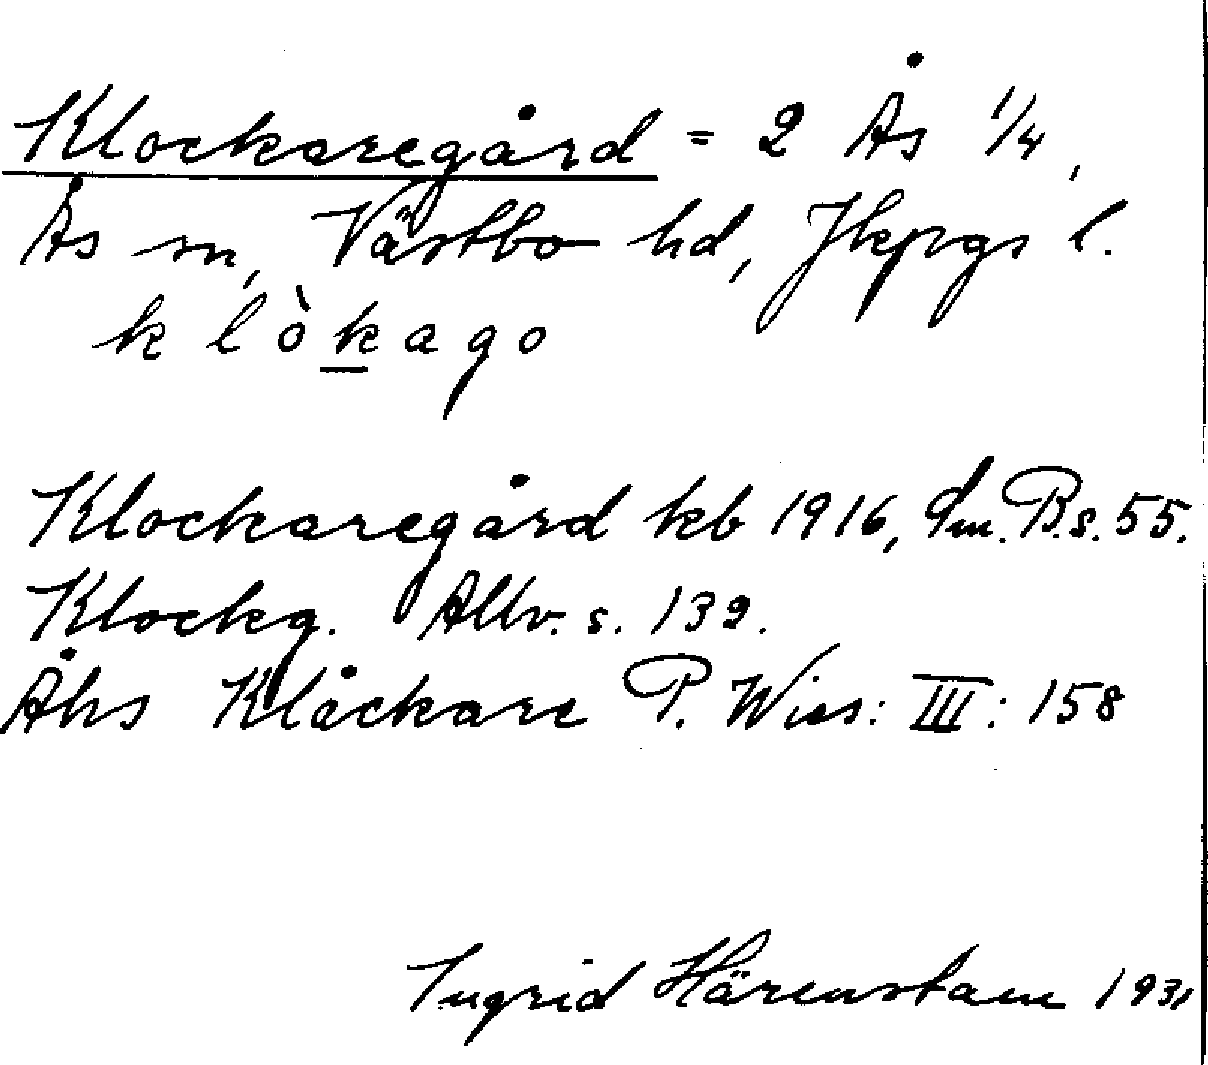 Klockaregård = 2 Ås 1/4,
Ås sn, Västbo hd, Jkpgs l.
klòkago
Klockaregård kb 1916, dm. B. s. 55.
Klockg. Allv. s. 139.
Åhs Klåckare P. Wies: III: 158
Ingrid Härenstam 1931